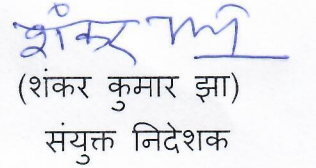 शंकर
(शंकर कुमार झा)
संयुक्त निदेशक